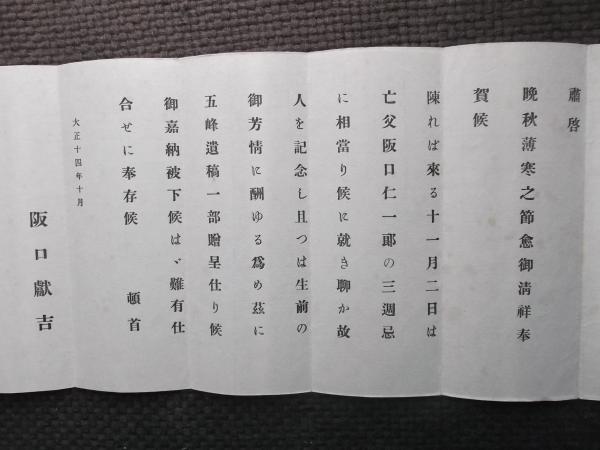 肅啓
晩秋薄寒之節愈御淸祥奉
賀候
陳れば來る十一月二日は
亡父阪口仁一郞の三週忌
に相當り候に就き聊か故
人を記念し且つは生前の
御芳情に酬ゆる爲め茲に
五峰遺稿一部贈呈仕り候
御嘉納被下候はゞ難有仕
合せに奉存候　頓首
大正十四年十月
阪口獻吉